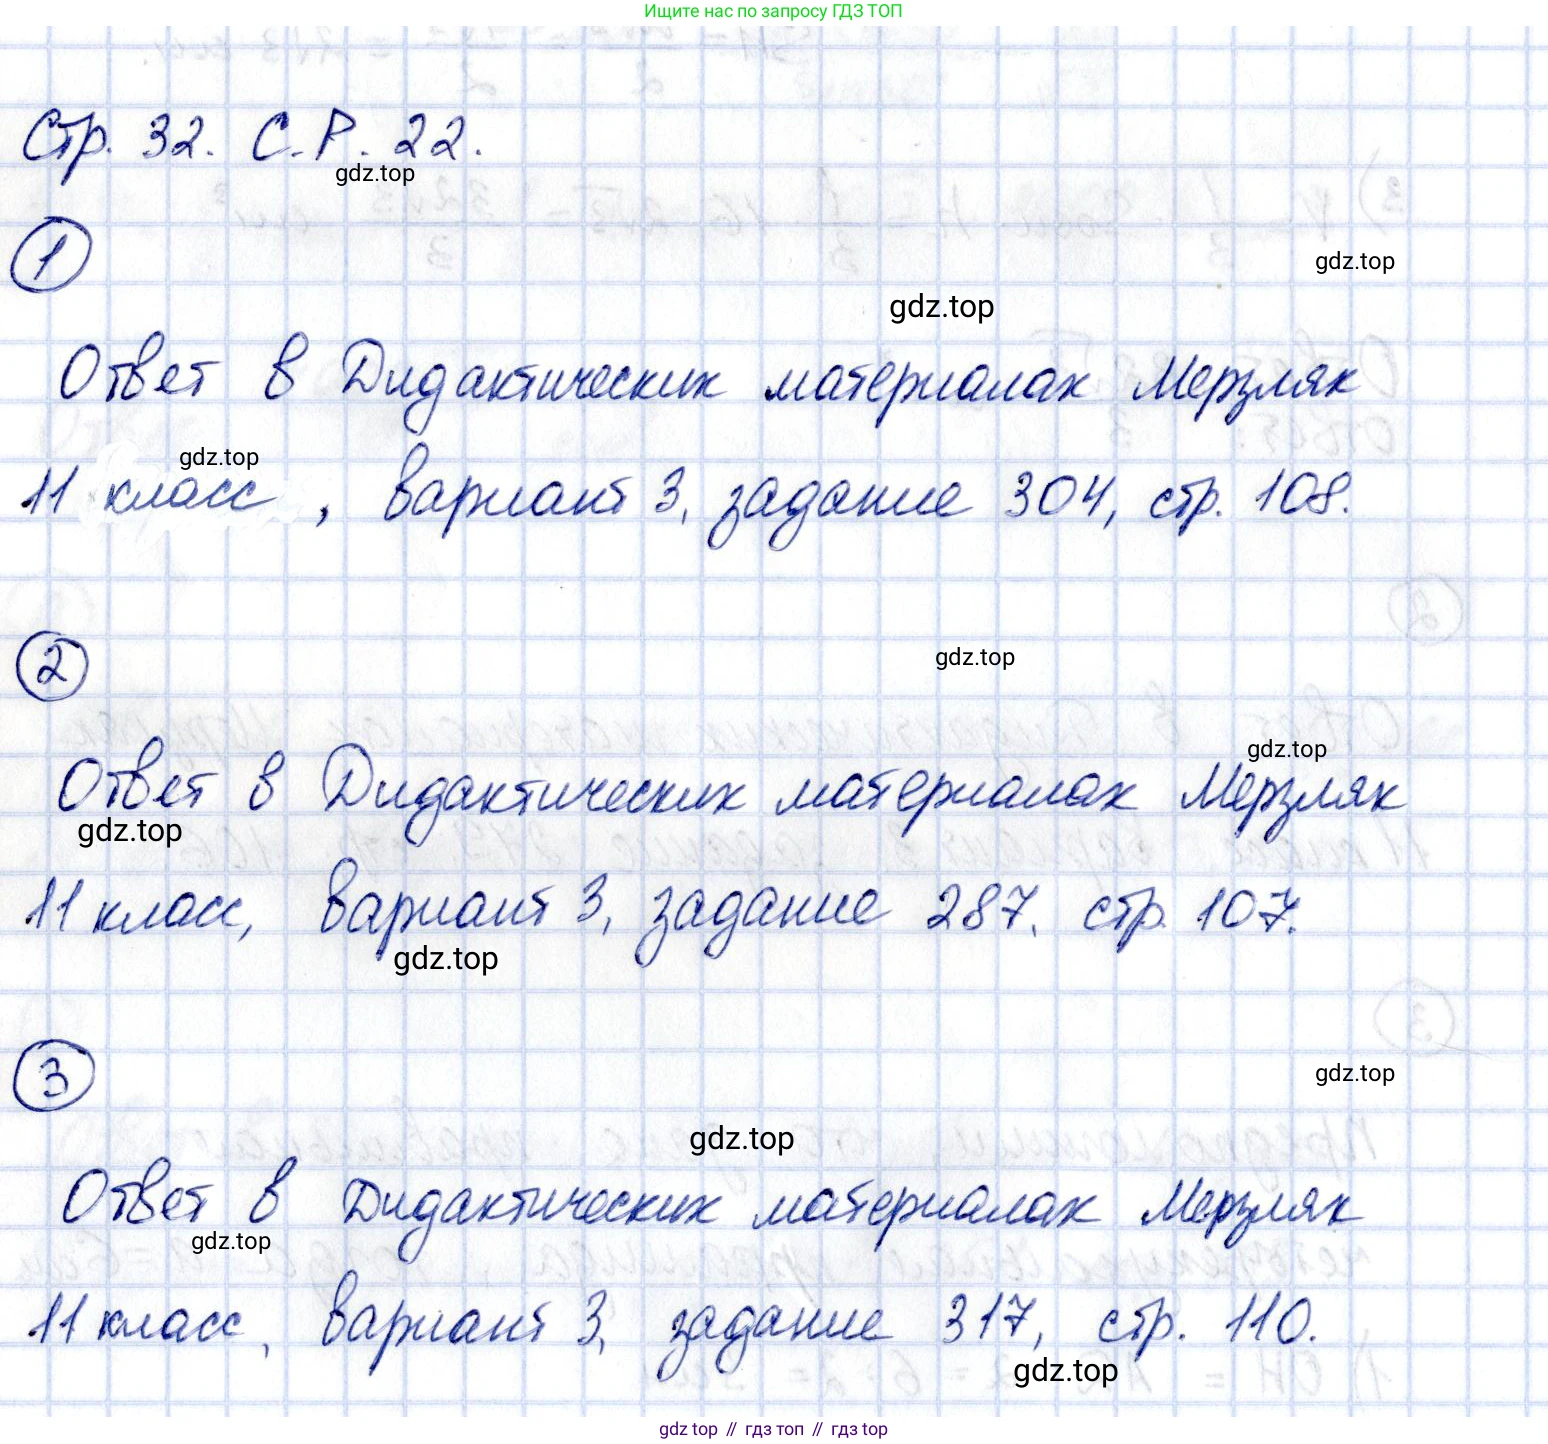 Ищите нас по запросу ГДЗ ТОП
Стр. 32. С.Р. 22.
gdz.top
1
gdz.top
gdz.top
Ответ в Дидактических материалах Мерзляк
gdz.top
11 класс, вариант 3, задание 304, стр. 108.
2
gdz.top
gdz.top
Ответ в Дидактических материалах Мерзляк
gdz.top
11 класс, вариант 3, задание 287, стр. 107.
gdz.top
3
gdz.top
gdz.top
Ответ в Дидактических материалах Мерзляк
gdz.top
11 класс, вариант 3, задание 317, стр. 110.
gdz.top
gdz top // гдз топ // гдз top